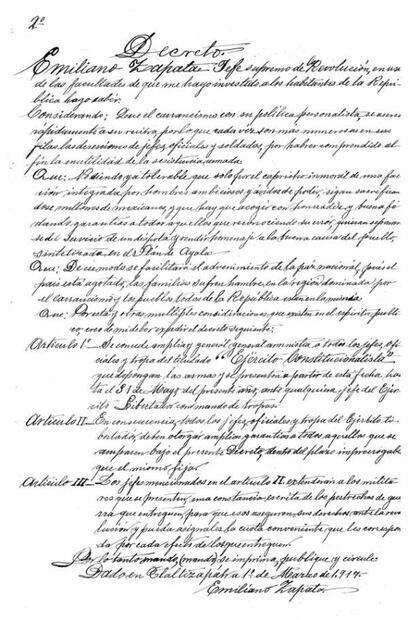 2º
Decreto.
Emiliano Zapata Jefe supremo de Revolución, en uso
de las facultades de que me hayo investido, a los habitantes de la Repú-
blica hago saber:
Considerando: Que el carrancismo con su política personalista, se acerca
rápidamente a su ruina, por lo que cada vez son más numerosas en sus
filas las deserciones de jefes, oficiales y soldados, por haber comprendido al
fin la inutilidad de la resistencia armada.
Que: No siendo ya tolerable que solo por el capricho inmoral de una fac-
ción integrada por hombres ambiciosos y ávidos de poder, sigan sacrifican-
dose, millones de mexicanos, y que hay que acojer con honradez y buena fé
dando garantías a todos aquellos que reconociendo su error, quieran separar-
se del servicio de un déspota y rendir homenaje a la buena causa del pueblo,
sintetizada en el Plan de Ayala
Que: De ese modo se facilitará el advenimiento de la paz nacional, pues el
país está agotado, las familias sufren hambre, en la región dominada por
el carrancismo y los pueblos todos de la República están en la miseria
Que: Por esta y otras multiples consideraciones, que existen en el espíritu públi-
co, creo mi deber expedir el decreto siguiente:
Artículo I— Se concede amplia y general, general amnistía a todos los jefes, ofi-
ciales y tropa del titulado "Ejército Constitucionalista"
que depongan, las armas y se presenten a partir de esta fecha, has-
ta el 31 de Mayo del presente año, ante cualquiera jefe del Ejér-
cito Libertador con mando de tropas.
Artículo II— En consecuencia, todos los jefes, oficiales y tropa del Ejército Li-
bertador, deben otorgar amplias garantías a todos aquellos que se
amparen bajo el presente Decreto, dentro del plazo improrrogable
que el mismo fija.
Artículo III— Los jefes mencionados en el artículo II, extenderán a los milita-
res que se presenten, una constancia escrita de los pertrechos de gue-
rra que entreguen, para que esos aseguren, sus derechos, ante la revo-
lución y pueda asignales la cuota conveniente, que les correspon-
da por cada efecto de los que entreguen.
Por lo tanto mando, (mando) se imprima, publique y circule.
Dado en Tlaltizapán a 1º de Marzo de 1,917.
Emiliano Zapata